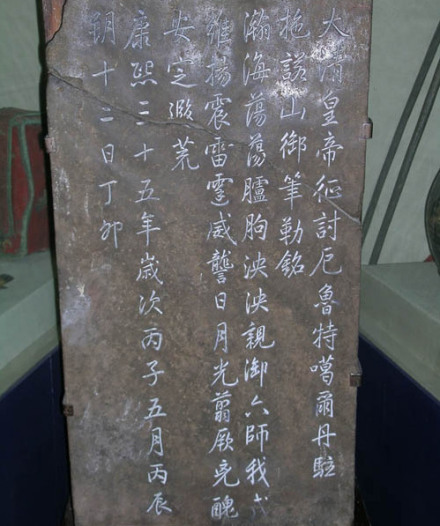 大清皇帝征討厄魯特噶爾丹駐
拖諾山御筆勒銘
瀚海蕩蕩臚朐泱泱親御六師我武
維揚震雷霆威讋日月光翦厥兇醜
安定遐荒
康熙三十五年歲次丙子五月丙辰
朔十二日丁卯